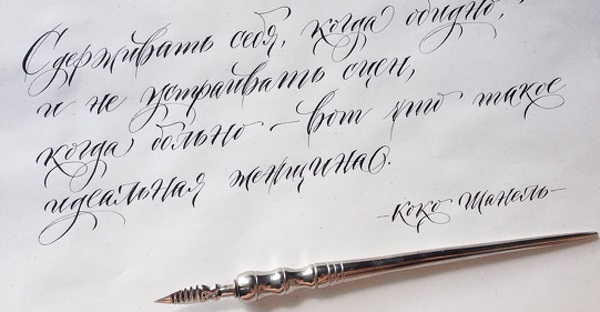 Сдерживать себя, когда обидно,
и не устраивать сцен,
когда больно – вот что такое
идеальная женщина.
– Коко Шанель –